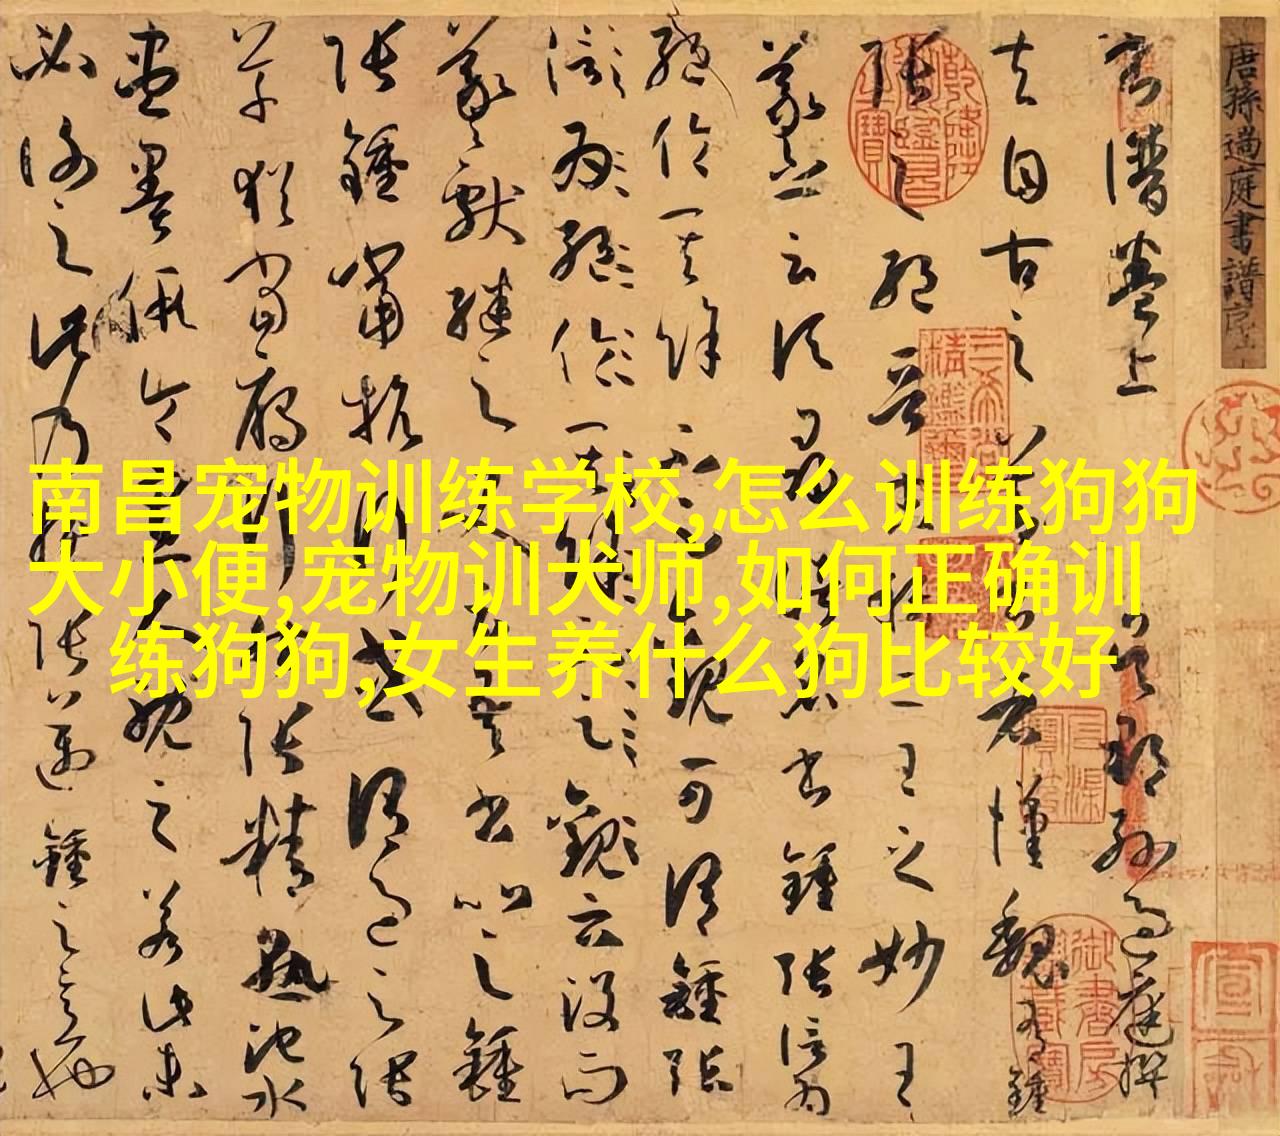 唐孫過庭書譜序上
書譜卷上 吳郡孫過庭撰
夫自古之善書者漢魏有鍾
張之絕晉末稱二王之妙王
羲之云頃尋諸名書鍾張信為
絕倫其餘不足觀可謂鍾張
云沒而
羲獻繼之又云吾書比之鍾
張鍾當抗行或謂過之張
草猶當鴈行然張精熟池水
盡墨假令寡人耽之若此未
必謝之此乃推張邁鍾之意也
南昌宠物训练学校,怎么训练狗狗
大小便,宠物训犬师,如何正确训
练狗狗,女生养什么狗比较好